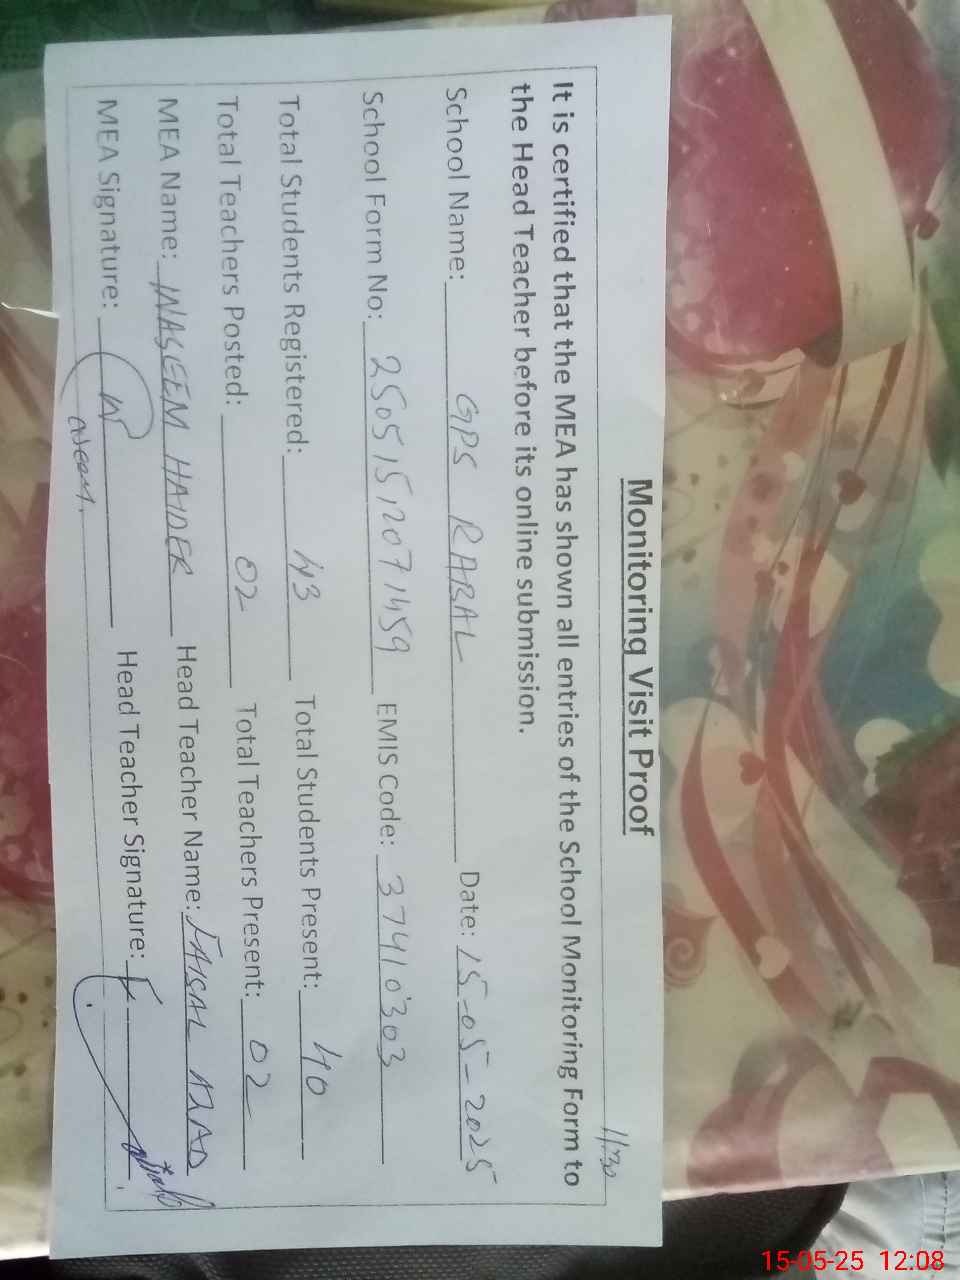 11:30
Monitoring Visit Proof
It is certified that the MEA has shown all entries of the School Monitoring Form to
the Head Teacher before its online submission.
School Name: GPS RABAL Date: 15-05-2025
School Form No: 25051512071459 EMIS Code: 37410303
Total Students Registered: 43 Total Students Present: 40
Total Teachers Posted: 02 Total Teachers Present: 02
MEA Name: WASEEM HAIDER Head Teacher Name: FAISAL AZAD
MEA Signature: Head Teacher Signature:
15-05-25 12:08